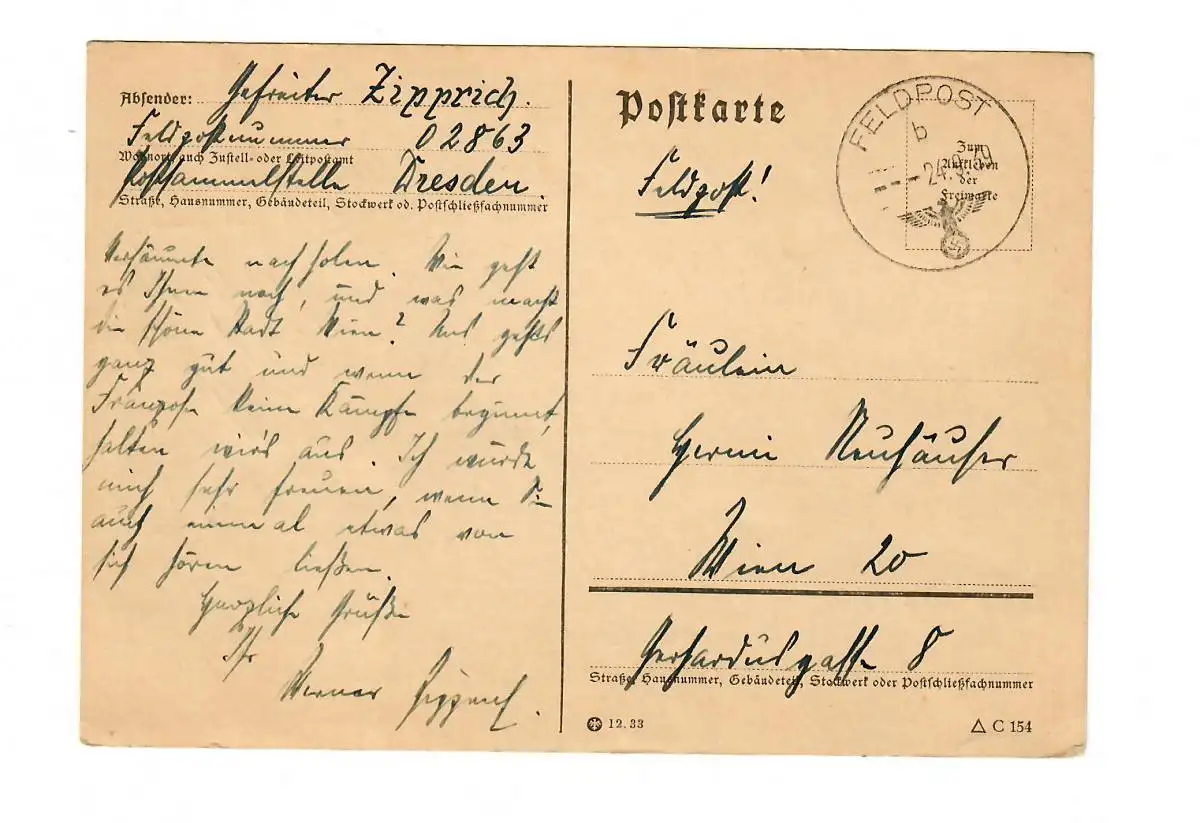 Absender: Gefreiter Zipprich.
Feldpostnummer 02863
Wohnort, auch Zustell- oder Leitpostamt
Postsammelstelle Dresden.
Straße, Hausnummer, Gebäudeteil, Stockwerk od. Postschließfachnummer
Versäumte nachholen. Wie geht
es Ihnen noch, und was macht
die schöne Stadt Wien? Uns gehts
ganz gut und wenn der
Franzose keine Kämpfe beginnt,
halten wirs aus. Ich würde
mich sehr freuen, wenn Sie
auch einmal etwas von
sich hören ließen.
Herzliche Grüße
Ihr
Werner Zipprich.
Postkarte
Feldpost!
FELDPOST
b
24.9.39
Zum
Aufkleben
der
Freimarke
Fräulein
Hermi Neuhäuser
Wien 20
Gerhardusgasse 8
Straße, Hausnummer, Gebäudeteil, Stockwerk oder Postschließfachnummer
12.33
C 154